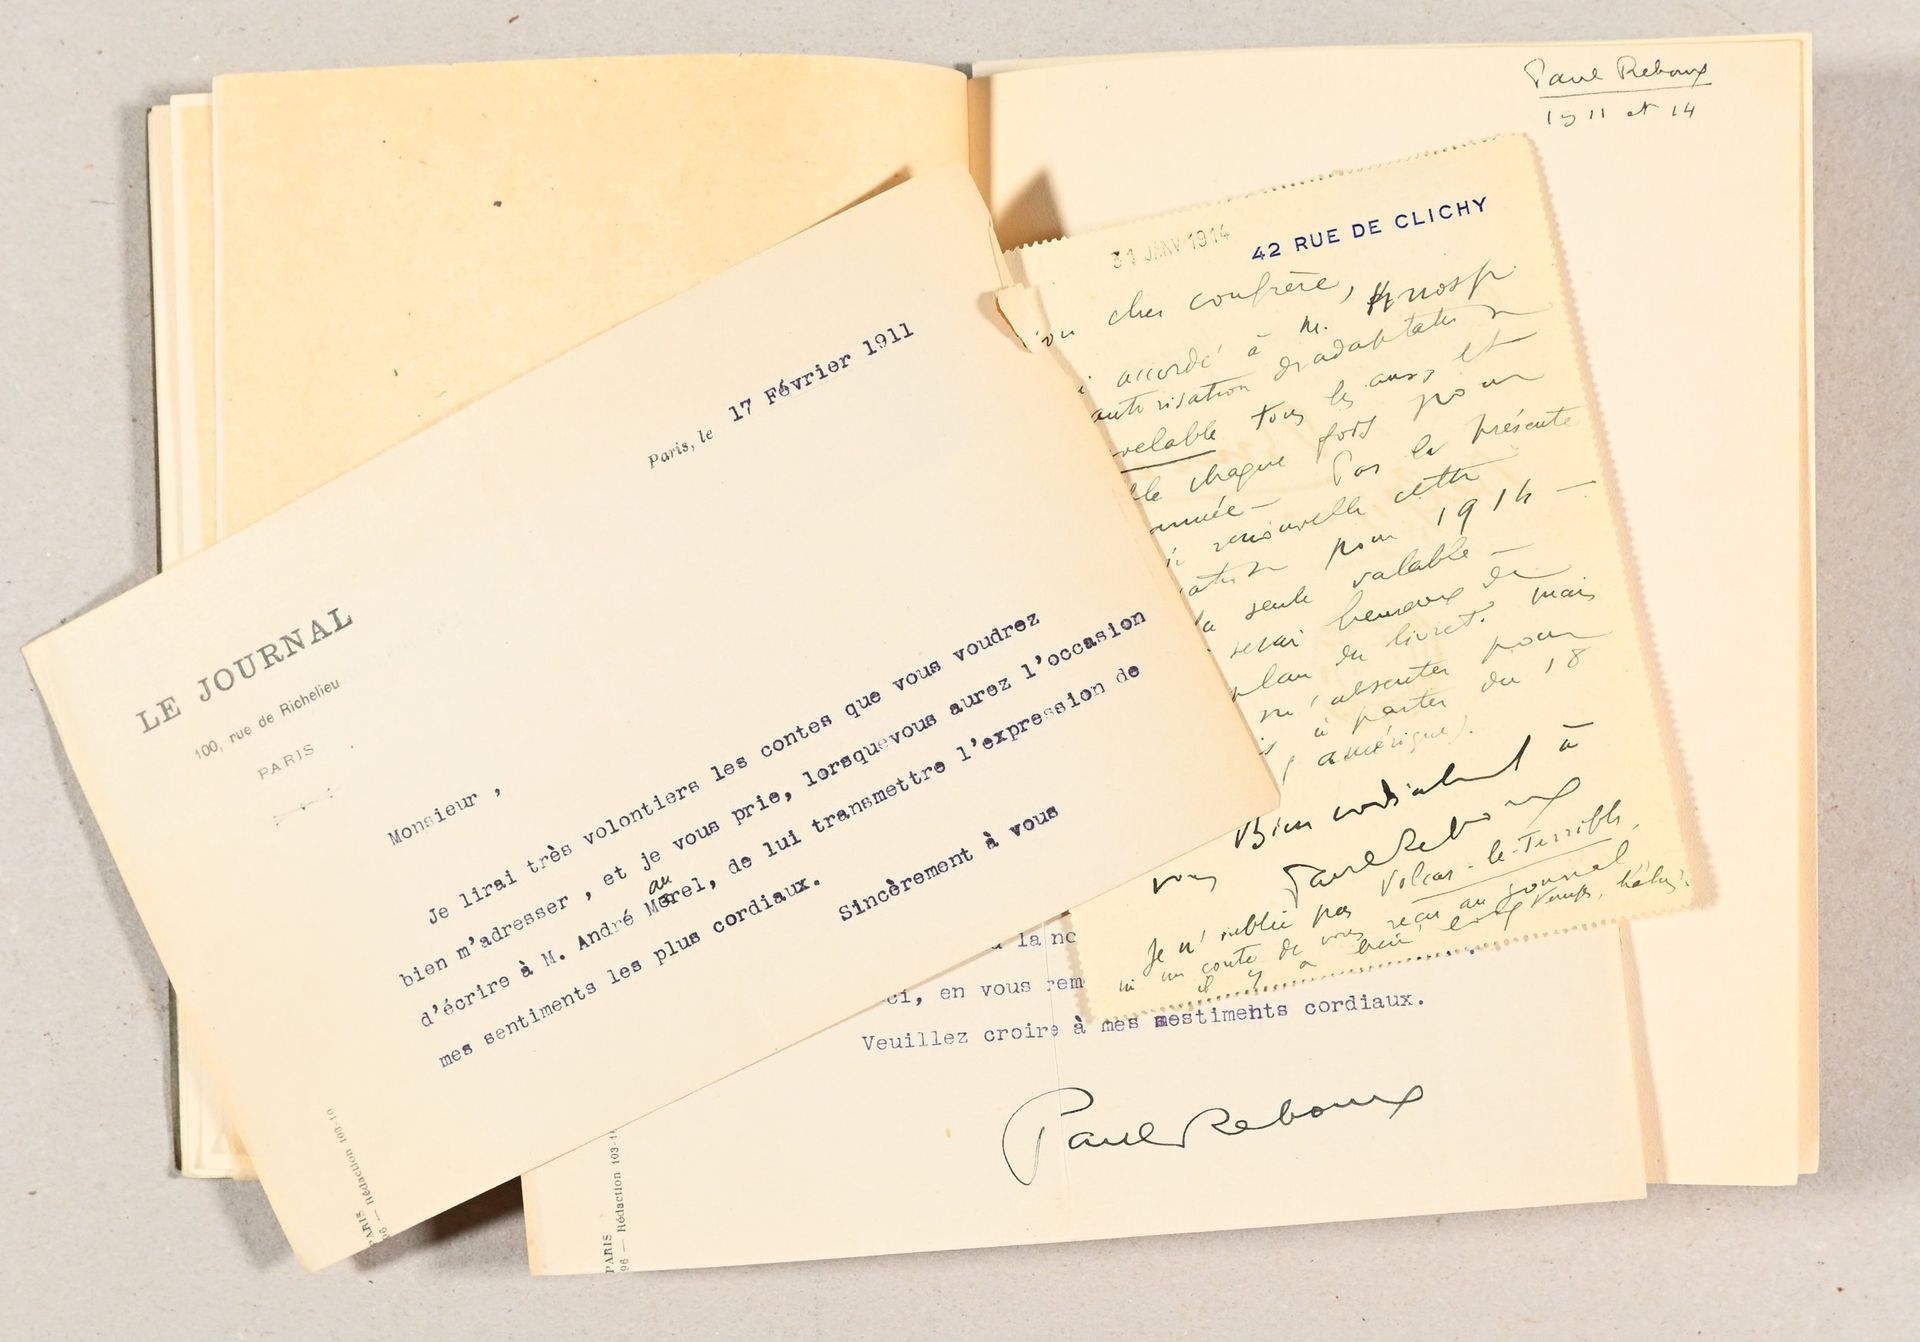 Paul Reboux
1911 et 14
LE JOURNAL
100, rue de Richelieu
PARIS
Paris, le 17 Février 1911
Monsieur ,
Je lirai très volontiers les contes que vous voudrez
bien m'adresser , et je vous prie, lorsquevous aurez l'occasion
au
d'écrire à M. André Morel, de lui transmettre l'expression de
mes sentiments les plus cordiaux.
Sincèrement à vous
PARIS
96 — Rédaction 103-10
31 JANV 1914
42 RUE DE CLICHY
cher confrère,
accordé à M.
autorisation d'adaptation
velable tous les ans, et
chaque fois pour
année — Par la présente
renouvelle cette
pour 1914 —
seule valable —
serai heureux de
plan du livret. mais
m'absenter pour
à partir du 18
amérique).
Bien cordialement à
vous Paul Reboux
Je n'oublie pas Volcar-le-Terrible,
ni un conte de vous reçu au journal,
il y a bien longtemps, hélas!
la no
ci, en vous rem
Veuillez croire à mes sestiments cordiaux.
Paul Reboux
PARIS
96 — Rédaction 103-1